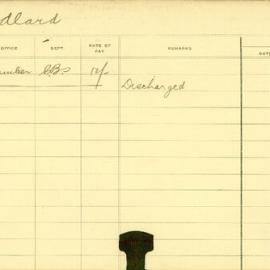 dlard
OFFICE DEPT. RATE OF PAY REMARKS DATE
12/-
Discharged